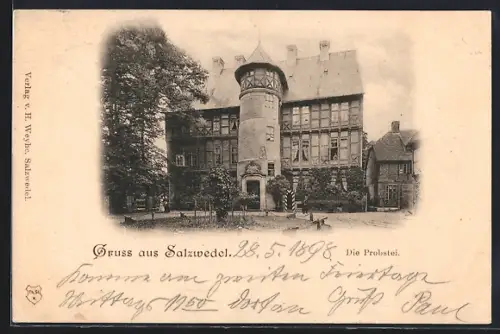 Verlag v. H. Weyhe, Salzwedel.
Gruss aus Salzwedel. 28.5.1898 Die Probstei.
Komme am zweiten Feiertage
Mittags 11 50 dort an Gruß Paul